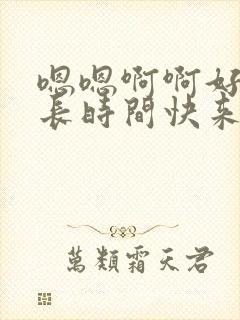 嗯嗯啊啊好
长时間快来
萬類霜天君